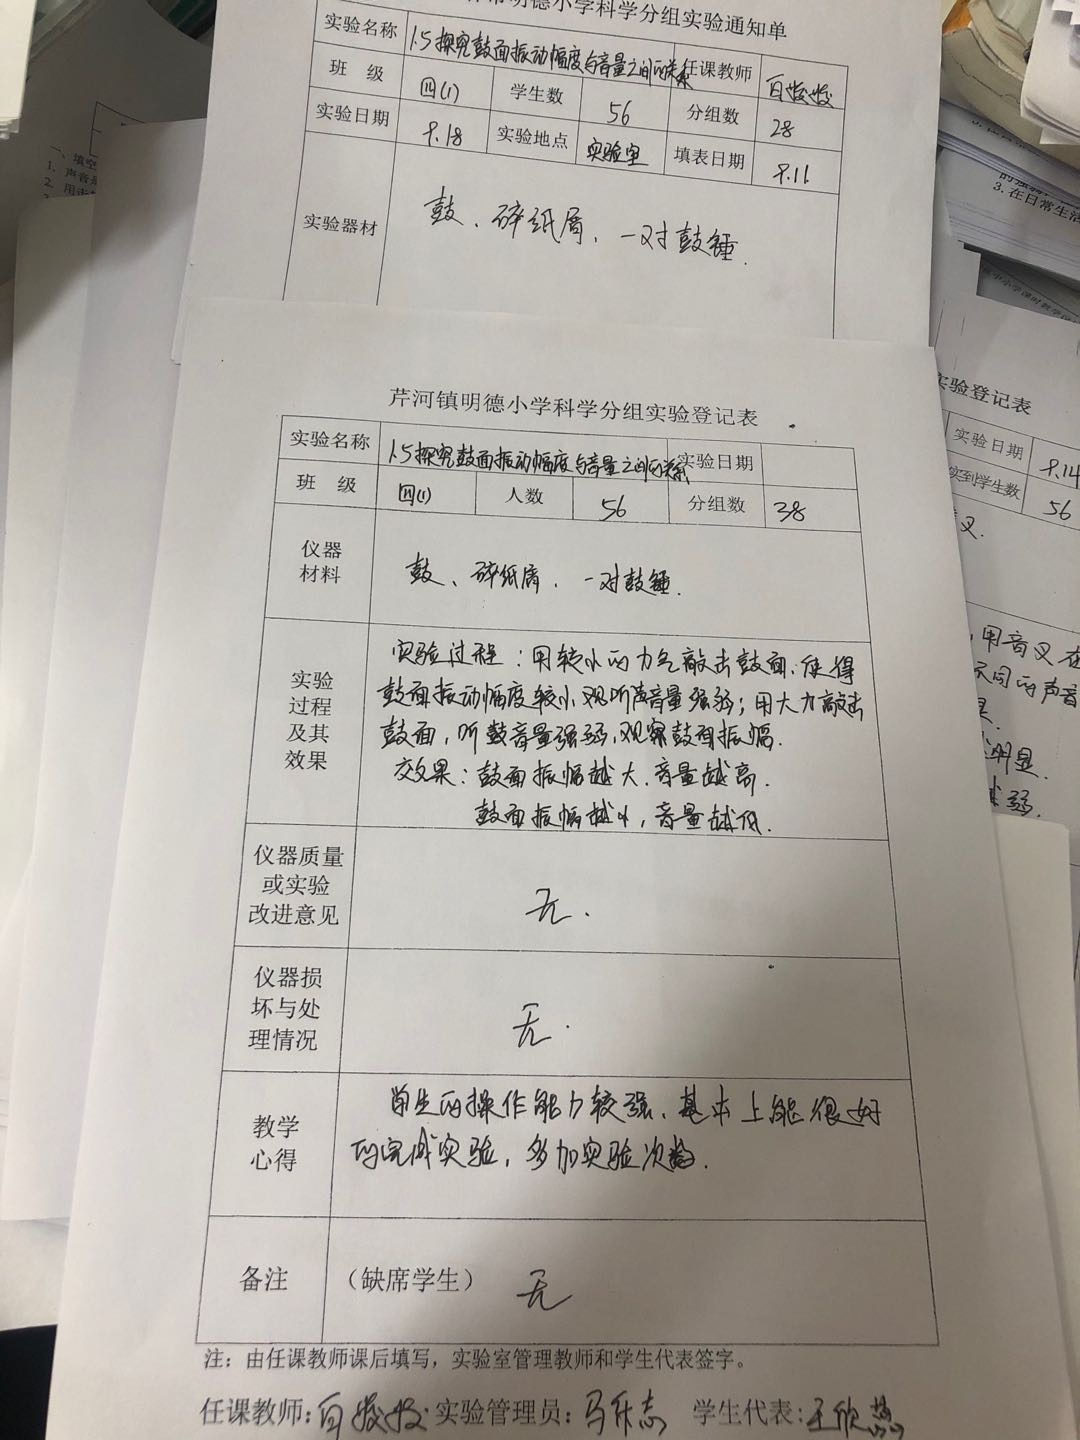 明德小学科学分组实验通知单
实验名称 1.5探究鼓面振动幅度与音量之间的关系 任课教师 白姣姣
班 级 四(1) 学生数 56 分组数 28
实验日期 9.18 实验地点 实验室 填表日期 9.11
实验器材 鼓、碎纸屑、一对鼓锤.
芹河镇明德小学科学分组实验登记表
实验名称 1.5探究鼓面振动幅度与音量之间的关系 实验日期
班 级 四(1) 人数 56 分组数 28
仪器
材料
鼓、碎纸屑、一对鼓锤.
实验
过程
及其
效果
实验过程:用较小的力气敲击鼓面、使得
鼓面振动幅度较小,观听声音量强弱;用大力敲击
鼓面,听鼓音量强弱,观察鼓面振幅.
效果:鼓面振幅越大、音量越高.
鼓面振幅越小,音量越低.
仪器质量
或实验
改进意见
无.
仪器损
坏与处
理情况
无.
教学
心得
学生的操作能力较强、基本上能很好
的完成实验,多加实验次数.
备注
(缺席学生) 无
注:由任课教师课后填写,实验室管理教师和学生代表签字。
任课教师:白姣姣 实验管理员: 学生代表:王欣
一、填空
1. 声音是
3. 在日常生活
实验登记表
实验日期 9.14
实到学生数 56
用音叉在
不同的声音
明显.
越弱.